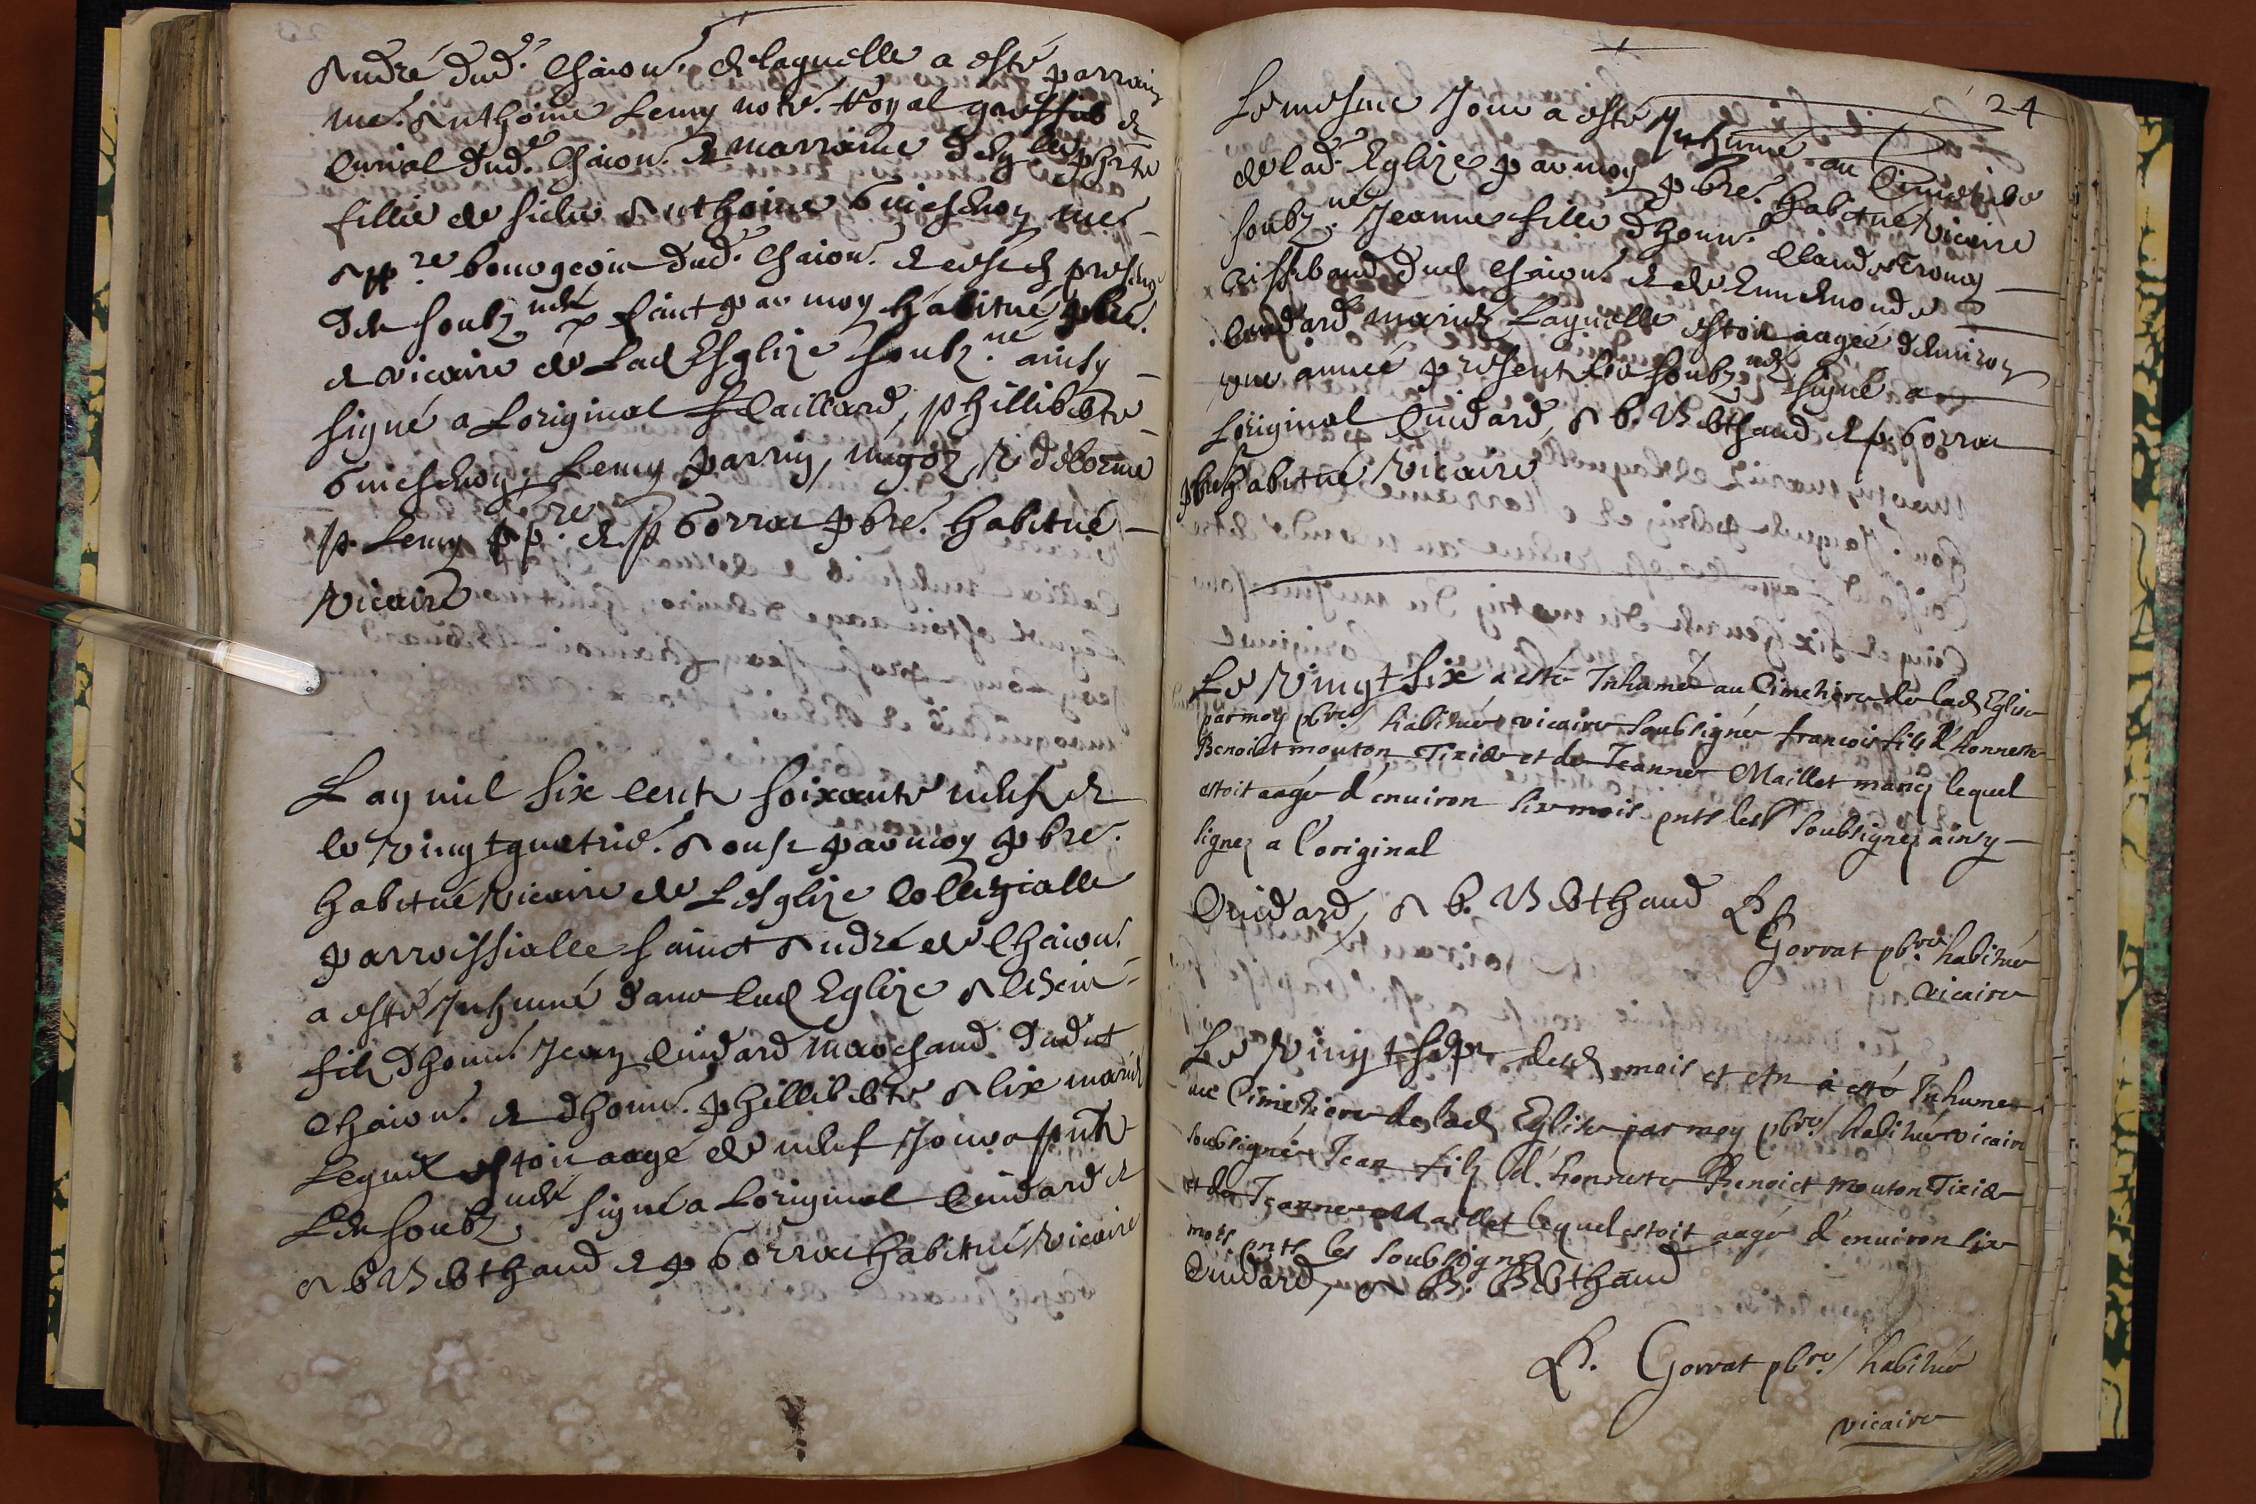 André dud. Chaion. de laquelle a esté parrain
me. Anthoine Lemy notre. Royal greffier &
Curial dud. Chaion. & marraine
fillie de sieur Anthoine Guichenon me
Appre bourgeois dud. Chaion. & prnte
soubz faict par moy habitué pbre.
& vicaire de Lad Esglize soubz.né ainsy
signé a Loriginal Caillard, phillib
Guichenon, Lemy parrin, Delorme
p Lemy ppre. & p Gorrat pbre. habitué
vicaire
L an mil six cent soixante neuf &
le vingt quatrie. Aoust par moy pbre.
habitué vicaire de L esglize Collegialle
parroissialle sainct André de Chaion.
a esté Inhumé dans lad Eglize
filz dhonn. Jean Cuidard marchand dudit
Chaion. & dhonn. phillib Alix mariéz
Lequel estoit aagé de neuf Jours pnts
Les soubz signé a Loriginal Cuidard &
A b. Berthaud & p Gorrat habitué vicaire
24
Le mesme Jour a esté Inhumé au Cimetiere
de lad. Eglize par moy pbre. habitué vicaire
soubz.né Jeanne fille dhonn. Claude
Tisserand dud Chaion. & de Ennemonde
Cuidard mariez Laquelle estoit aagée denviron
une année present les soubz signé a
Loriginal Cuidard, A b. Berthaud & p. Gorrat
pbre habitué vicaire
Le vingt six a esté Inhumé au Cimetiere de lad Eglise
par moy pbre/ habitué vicaire soubsigné francois filz d'honneste
Benoict mouton Tixier et de Jeanne Maillet mariez lequel
estoit aagé d'environ six mois pnts les soubsignez ainsy
signez a l'original
Cuidard, A b. Berthaud P.
Gorrat pbre. habitué
vicaire
Le vingt sept desd mois et an a esté Inhumé
au Cimetiere de lad Eglise par moy pbre/ habitué vicaire
soubsigné Jean filz d'honneste Benoict mouton Tixier
et de Jeanne Maillet lequel estoit aagé d'environ six
mois pnts les soubsignez
Cuidard, A B. Berthaud
P. Gorrat pbre./ habitué
vicaire